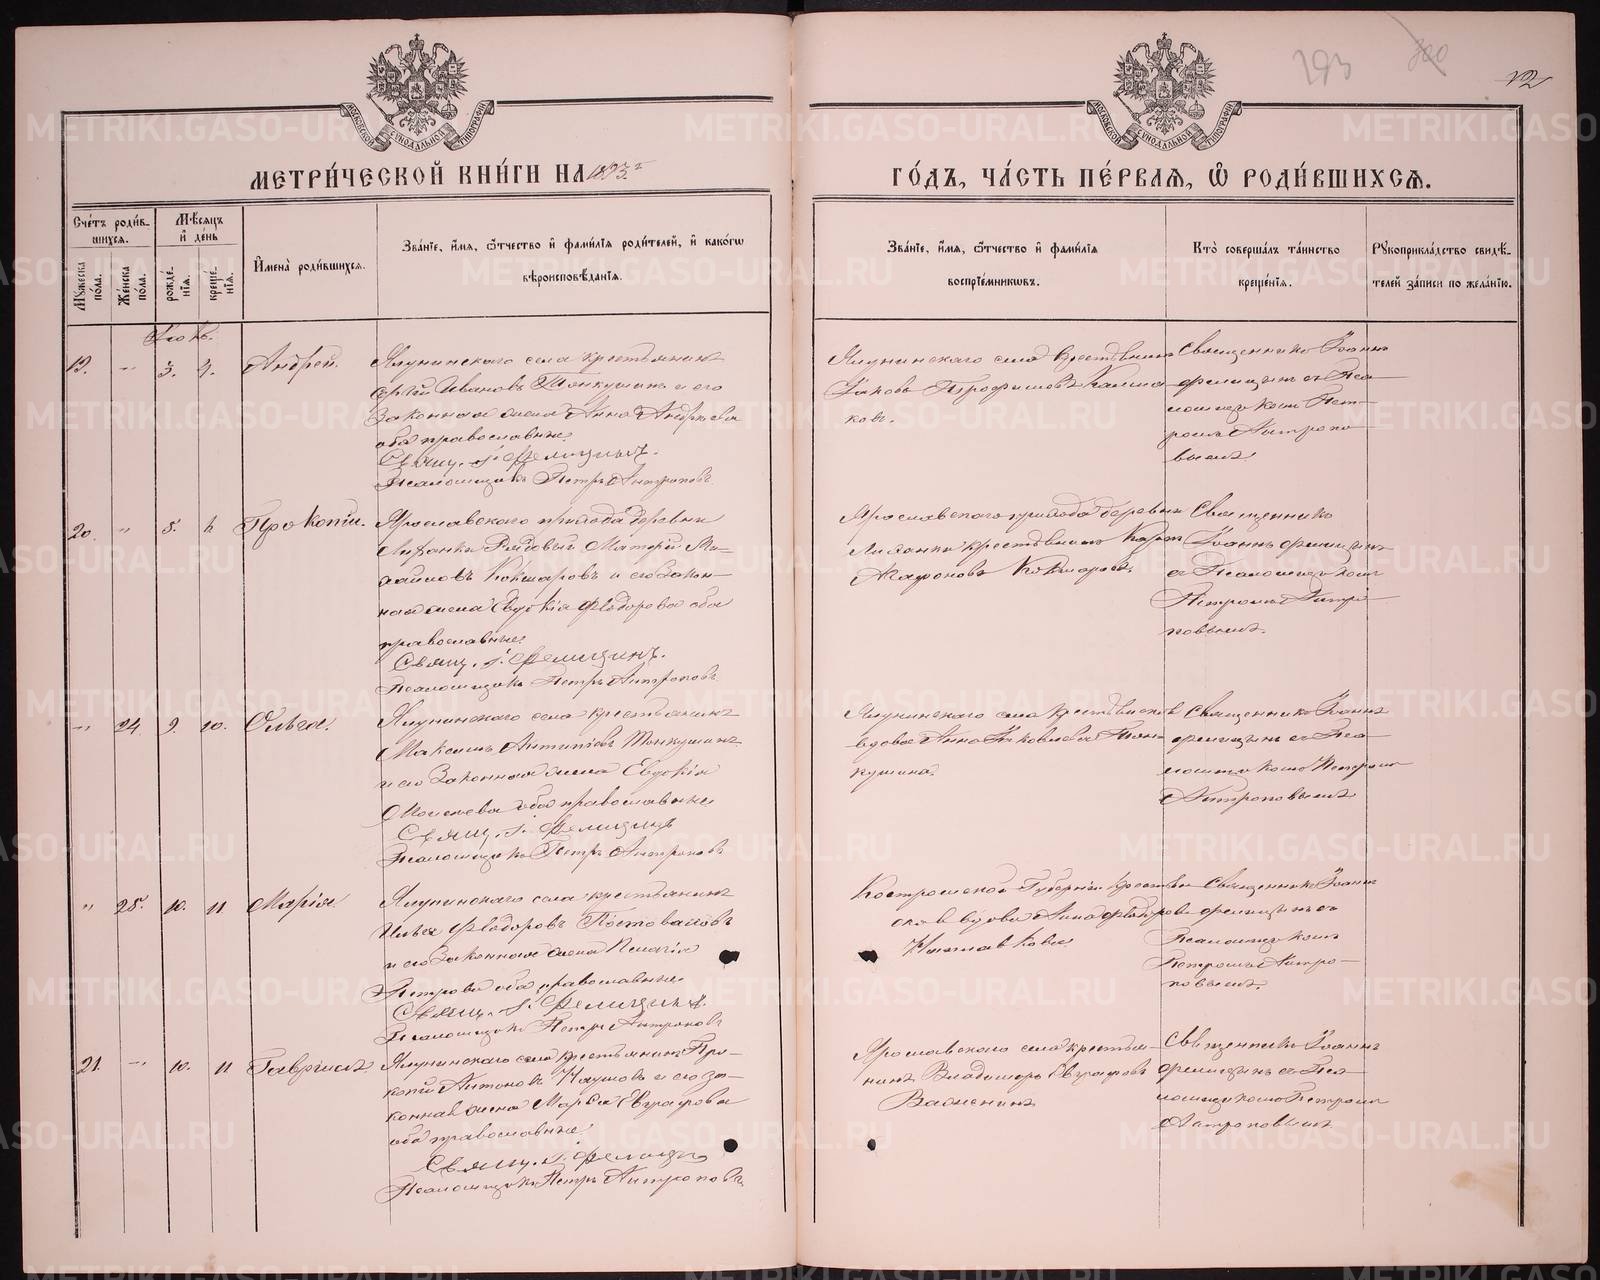 293
300
12
МОСКОВСКОЙ СѴНОДАЛЬНОЙ ТИПОГРАФІИ
МОСКОВСКОЙ СѴНОДАЛЬНОЙ ТИПОГРАФІИ
МЕТРИ́ЧЕСКОЙ КНИ́ГИ НА 1893 г
ГО́ДЪ, ЧА́СТЬ ПЕ́РВАЯ, Ѡ РОДИ́ВШИХСЯ.
Сче́тъ роди́в-
шихся.
Му́жеска по́ла.
Же́нска по́ла.
Мѣ́сяцъ и́ де́нь
рожде́нія.
креще́нія.
И́мена̀ роди́вшихся.
Зва́нїе, и́мя, ѻ́тчество и́ фами́лїя роди́телей, и́ како́гѡ
вѣроисповѣ́данїя.
Зва́нїе, и́мя, ѻ́тчество и́ фами́лїя
воспрїе́мниковъ.
Кто̀ соверша́лъ та́инство
креще́нїя.
Рꙋкоприкла́дство свидѣ́-
телей за́писи по жела́нїю.
Іюль.
19. " 3. 4. Андрей.
Ялунинскаго села крестьянинъ
Сергѣй Ивановъ Тонкушинъ и его
законная жена Анна Андреева
оба православные.
Свящ. І. Фелицынъ.
Псаломщикъ Петръ Антроповъ
Ялунинскаго села крестьянинъ
Яковъ Трофимовъ Калма
ковъ.
Священникъ Іоаннъ
Фелицынъ съ Пса-
ломщикомъ Пет-
ромъ Антропо
вымъ
20. " 5. 6 Прокопій.
Ярославскаго прихода деревни
Лиханки Рядовый Матѳей Ми-
хайловъ Кокшаровъ и его закон-
ная жена Евдокія Ѳедорова оба
православные.
Свящ. І. Фелицынъ.
Псаломщикъ Петръ Антроповъ
Ярославскаго прихода деревни
Лиханки крестьянинъ Карпъ
Агафоновъ Кокшаровъ
Священникъ
Іоаннъ Фелицынъ
съ Псаломщикомъ
Петромъ Антро
повымъ.
" 24. 9. 10. Ольга.
Ялунинскаго села крестьянинъ
Максимъ Антипіевъ Тонкушинъ
и его законная жена Евдокія
Моисеева оба православные
Свящ. І. Фелицынъ
Псаломщикъ Петръ Антроповъ
Ялунинскаго села крестьянская
вдова Анна Яковлева Тон-
кушина
Священникъ Іоаннъ
Фелицынъ съ Пса-
ломщикомъ Петромъ
Антроповымъ
" 25. 10. 11 Марія
Ялунинскаго села крестьянинъ
Илья Ѳедоровъ Постоваловъ
и его законная жена Пелагія
Петрова оба православные
Свящ. І. Фелицынъ.
Псаломщикъ Петръ Антроповъ
Костромской Губерніи крестьян
ская вдова Анна Ѳедорова
Священникъ Іоаннъ
Фелицынъ съ
Псаломщикомъ
Петромъ Антро-
повымъ.
21. " 10. 11 Гавріилъ
Ялунинскаго села крестьянинъ Про-
копій Антоновъ Наумовъ и его за-
конная жена Марѳа Евграфова
оба православные
Свящ. І. Фелицынъ
Псаломщикъ Петръ Антроповъ
Ярославскаго села крестья-
нинъ Владиміръ Евграфовъ
Важенинъ
Священникъ Іоаннъ
Фелицынъ съ Пса-
ломщикомъ Петромъ
Антроповымъ
METRIKI.GASO-URAL.RU